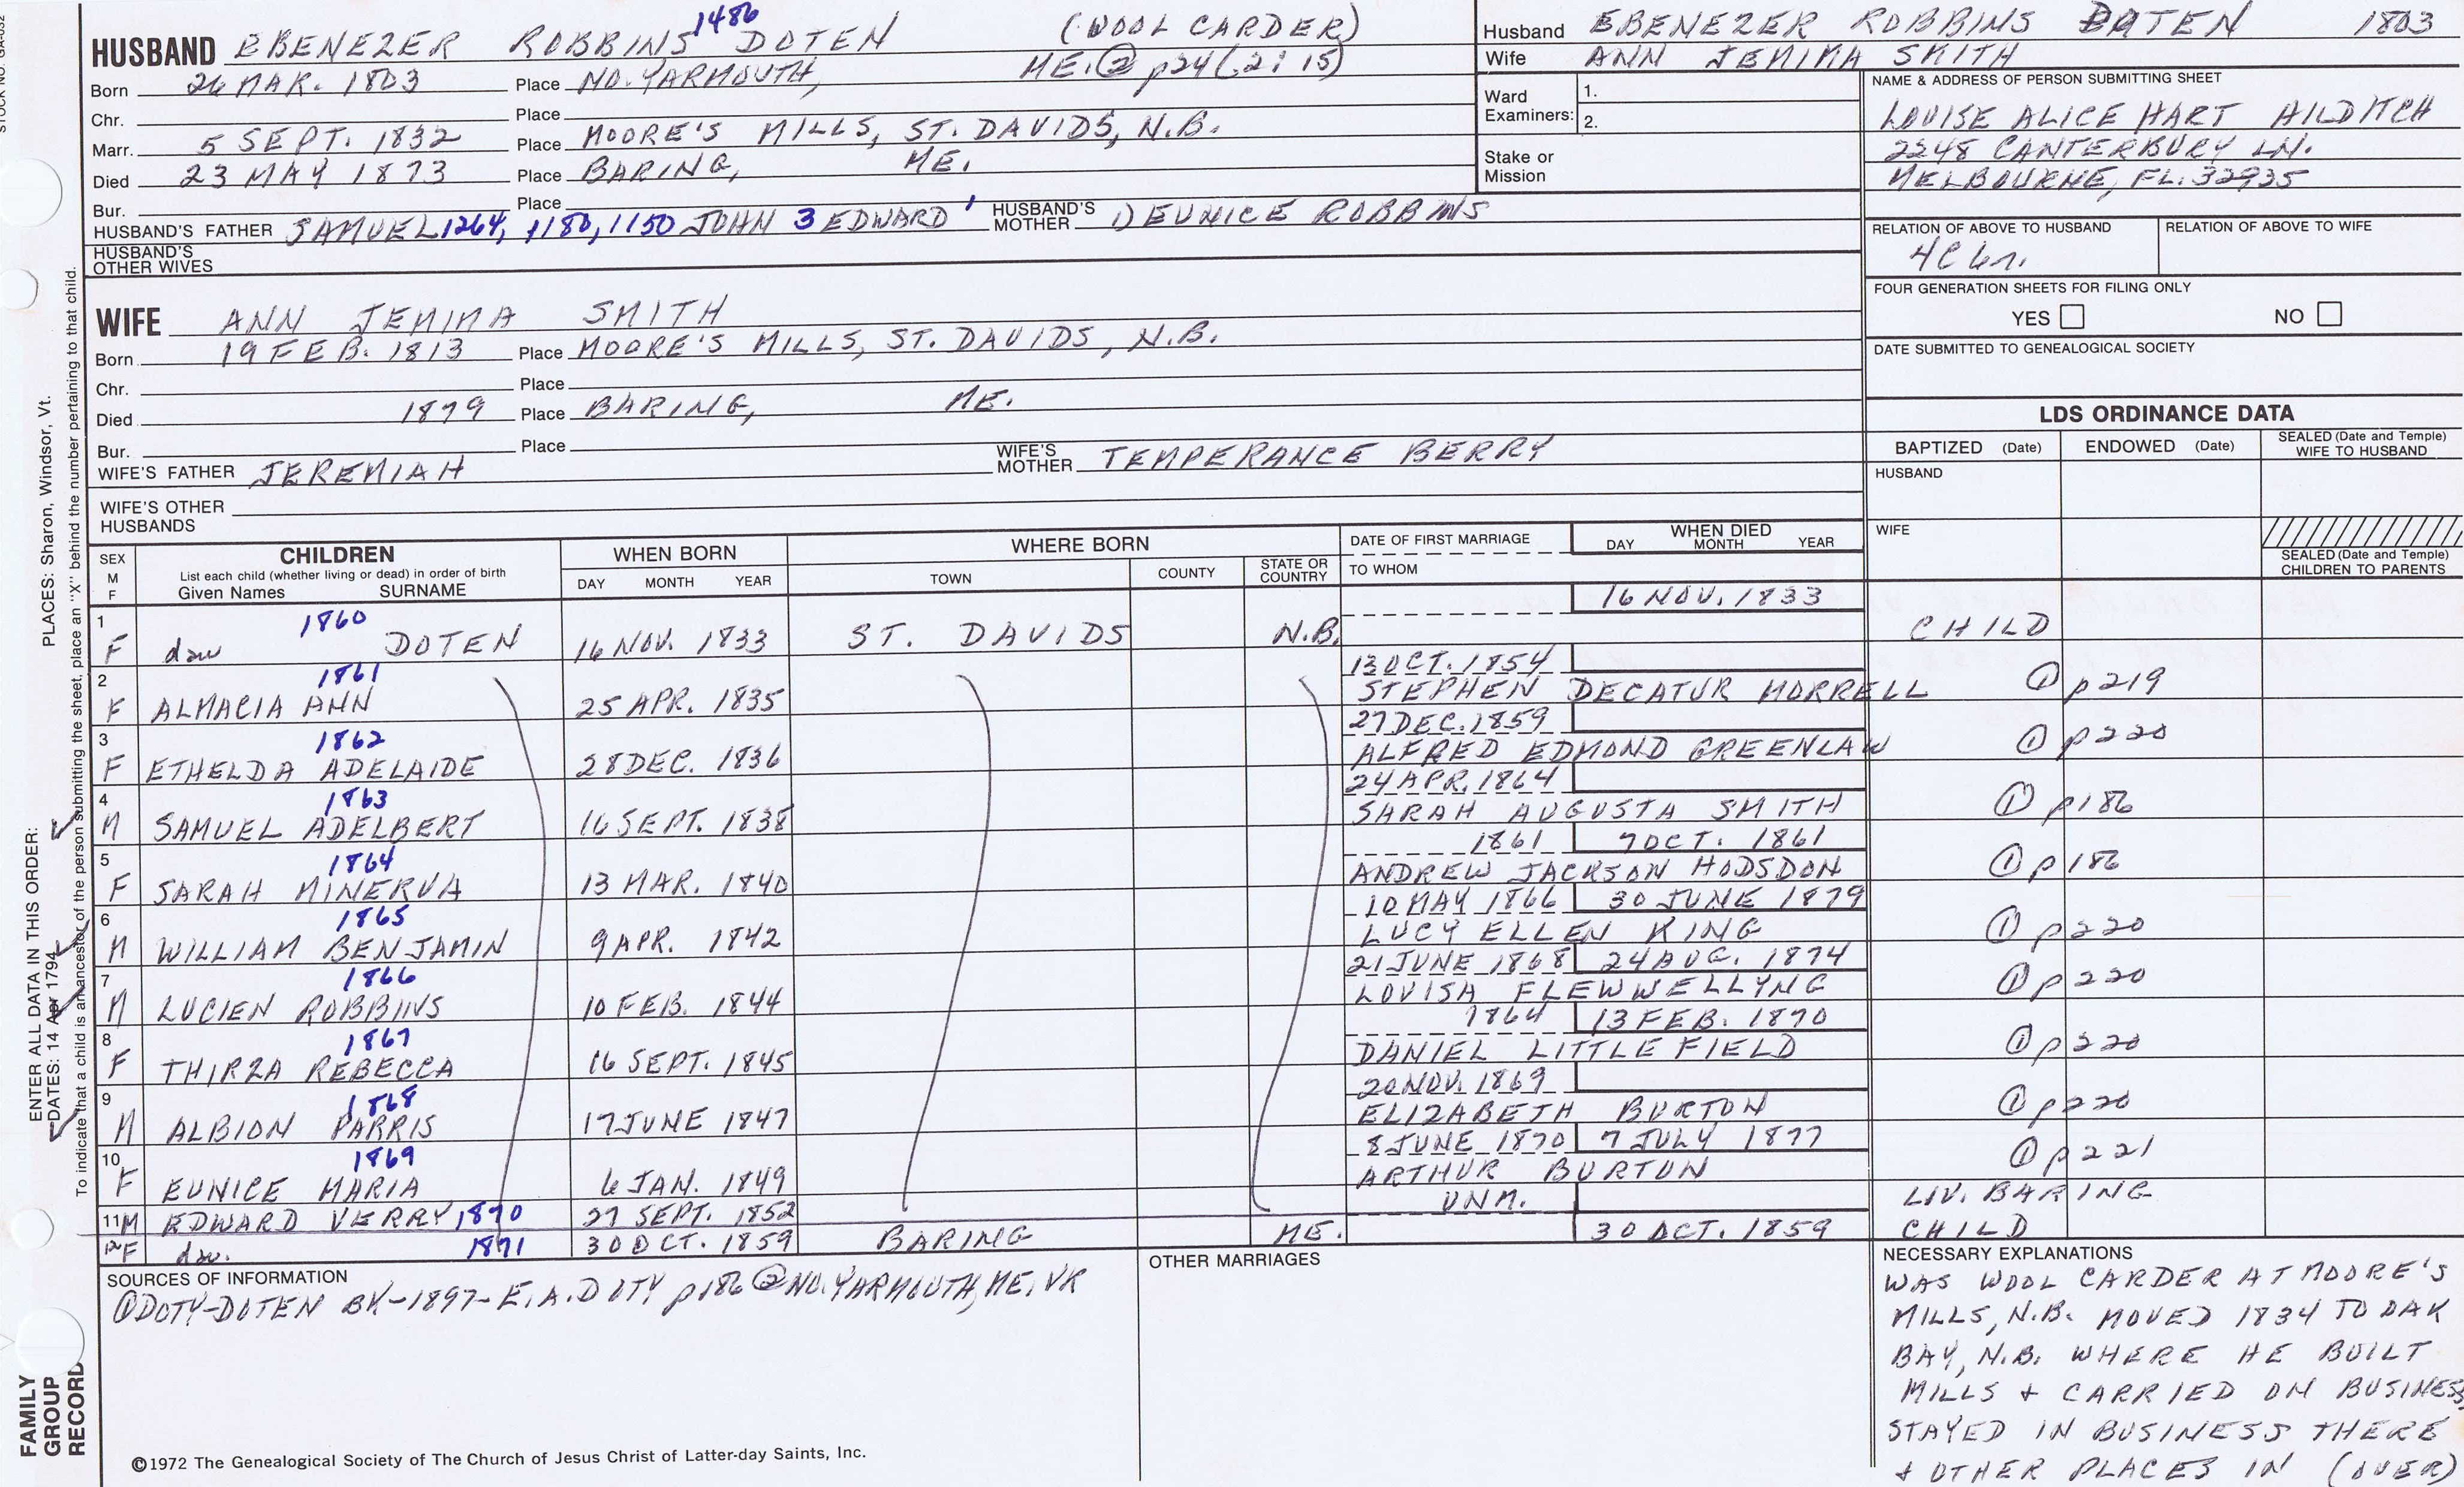 STOCK NO. GA-032
HUSBAND EBENEZER ROBBINS 1486 DOTEN (WOOL CARDER)
Born 26 MAR. 1803 Place NO. YARMOUTH, ME. ② p24 (2:15)
Chr. Place
Marr. 5 SEPT. 1832 Place MOORE'S MILLS, ST. DAVIDS, N.B.
Died 23 MAY 1873 Place BARING, ME.
Bur. Place
HUSBAND'S FATHER SAMUEL 1264, 1180, 1150 JOHN 3 EDWARD 1 HUSBAND'S MOTHER 1) EUNICE ROBBINS
HUSBAND'S OTHER WIVES
WIFE ANN JEMIMA SMITH
Born 19 FEB. 1813 Place MOORE'S MILLS, ST. DAVIDS, N.B.
Chr. Place
Died 1879 Place BARING, ME.
Bur. Place
WIFE'S FATHER JEREMIAH WIFE'S MOTHER TEMPERANCE BERRY
WIFE'S OTHER HUSBANDS
Husband EBENEZER ROBBINS DOTEN 1803
Wife ANN JEMIMA SMITH
Ward Examiners: 1.
2.
Stake or Mission
NAME & ADDRESS OF PERSON SUBMITTING SHEET
LOUISE ALICE HART HILDITCH
2248 CANTERBURY LN.
MELBOURNE, FL. 32935
RELATION OF ABOVE TO HUSBAND RELATION OF ABOVE TO WIFE
4C 6r.
FOUR GENERATION SHEETS FOR FILING ONLY
YES NO
DATE SUBMITTED TO GENEALOGICAL SOCIETY
LDS ORDINANCE DATA
BAPTIZED (Date) ENDOWED (Date) SEALED (Date and Temple) WIFE TO HUSBAND
HUSBAND
WIFE
SEALED (Date and Temple) CHILDREN TO PARENTS
SEX M F CHILDREN List each child (whether living or dead) in order of birth Given Names SURNAME
WHEN BORN DAY MONTH YEAR
WHERE BORN TOWN COUNTY STATE OR COUNTRY
DATE OF FIRST MARRIAGE TO WHOM
WHEN DIED DAY MONTH YEAR
1 F daw 1860 DOTEN 16 NOV. 1833 ST. DAVIDS N.B. 16 NOV. 1833 CHILD
2 F ALMACIA ANN 1861 25 APR. 1835 13 OCT. 1854 STEPHEN DECATUR MORRELL ① p219
3 F ETHELDA ADELAIDE 1862 28 DEC. 1836 27 DEC. 1859 ALFRED EDMOND GREENLAW ① p220
4 M SAMUEL ADELBERT 1863 16 SEPT. 1838 24 APR. 1864 SARAH AUGUSTA SMITH ① p186
5 F SARAH MINERVA 1864 13 MAR. 1840 1861 7 OCT. 1861 ANDREW JACKSON HODSDON ① p186
6 M WILLIAM BENJAMIN 1865 9 APR. 1842 10 MAY 1866 30 JUNE 1879 LUCY ELLEN KING ① p220
7 M LUCIEN ROBBINS 1866 10 FEB. 1844 21 JUNE 1868 24 AUG. 1874 LOVISA FLEWWELLYNG ① p220
8 F THIRZA REBECCA 1867 16 SEPT. 1845 1864 13 FEB. 1870 DANIEL LITTLEFIELD ① p220
9 M ALBION PARRIS 1868 17 JUNE 1847 20 NOV. 1869 ELIZABETH BURTON ① p220
10 F EUNICE MARIA 1869 6 JAN. 1849 8 JUNE 1870 7 JULY 1877 ARTHUR BURTON ① p221
11 M EDWARD VERRY 1870 27 SEPT. 1852 UNM. LIV. BARING
12 F daw. 1871 30 OCT. 1859 BARING ME. 30 OCT. 1859 CHILD
SOURCES OF INFORMATION
① DOTY-DOTEN BK-1897-E.A. DOTY p186 ② NO. YARMOUTH, ME. VR
OTHER MARRIAGES
NECESSARY EXPLANATIONS
WAS WOOL CARDER AT MOORE'S
MILLS, N.B. MOVED 1834 TO OAK
BAY, N.B. WHERE HE BUILT
MILLS + CARRIED ON BUSINESS,
STAYED IN BUSINESS THERE
+ OTHER PLACES IN (OVER)
©1972 The Genealogical Society of The Church of Jesus Christ of Latter-day Saints, Inc.
FAMILY GROUP RECORD
ENTER ALL DATA IN THIS ORDER:
DATES: 14 Apr 1794
PLACES: Sharon, Windsor, Vt.
To indicate that a child is an ancestor of the person submitting the sheet, place an "X" behind the number pertaining to that child.